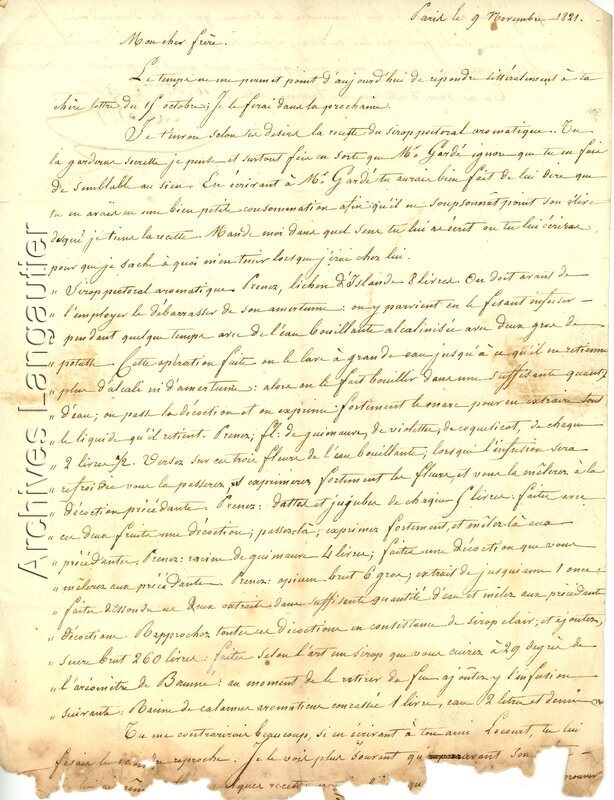 Paris le 9 Novembre 1821.
Mon cher frère.
Le temps ne me permet point d'aujourd'hui de répondre littéralement à ta
chère lettre du 15 octobre; Je le ferai dans la prochaine.
Je t'envoie selon tes désirs la recette du sirop pectoral aromatique. Tu
la garderas secrette je pense et surtout fais en sorte que Mr. Gardé ignore que tu en fais
de semblable au sien. En écrivant à Mr. Gardé tu aurais bien fait de lui dire que
tu en avais eu une bien petite consommation afin qu'il ne soupsonnat point son élève
de qui je tiens la recette. Mande moi dans quel sens tu lui as écrit ou tu lui écriras
pour que je sache à quoi m'en tenir lorsque j'irai chez lui.
" Sirop pectoral aromatique. Prenez, lichen d'Islande 8 livres. On doit avant de
" l'employer le débarrasser de son amertume: on y parvient en le fesant infuser
" pendant quelque temps avec de l'eau bouillante alcalinisée avec deux gros de
" potasse. Cette opération faite on le lave à grande eau jusqu'à ce qu'il ne retienne
" plus d'alcali ni d'amertume: alors on le fait bouillir dans une suffisante quantité
" d'eau; on passe la décoction et on exprime fortement le marc pour en extraire tout
" le liquide qu'il retient. Prenez, fl: de guimauve, de violette, de coquelicot, de chaque
" 2 livres ½. Versez sur ces trois fleurs de l'eau bouillante; lorsque l'infusion sera
" refroidie vous la passerez, et exprimerez fortement les fleurs, et vous la mêlerez à la
" décoction précédante. Prenez: dattes et jujubes de chaque 5 livres: faites avec
" ces deux fruits une décoction; passez-la, exprimez fortement, et mêlez-là aux
" précédantes. Prenez: racine de guimauve 4 livres; faites une décoction que vous
" mêlerez aux précédante. Prenez: opium brut 6 gros; extrait de jusquiame 1 once:
" faites dissoudre ces deux extraits dans suffisente quantité d'eau et mêlez aux précédante
" décoction. Rapprochez toutes ces décoctions en consistence de sirop clair; et ajoutez,
" sucre brut 260 livres: faites selon l'art un sirop que vous cuirez à 29 degrés de
" l'aréomètre de Baumé: au moment de le retirer du feu ajoutez y l'infusion
" suivante: Racine de calamus aromaticus concassée 1 livre, eau 2 litres et demi. "
Tu me contrarierais beaucoup, si en écrivant à ton ami Locourt, tu lui
fesais le reproche. Je le vois plus souvant avant son
recette
Archives Langautier